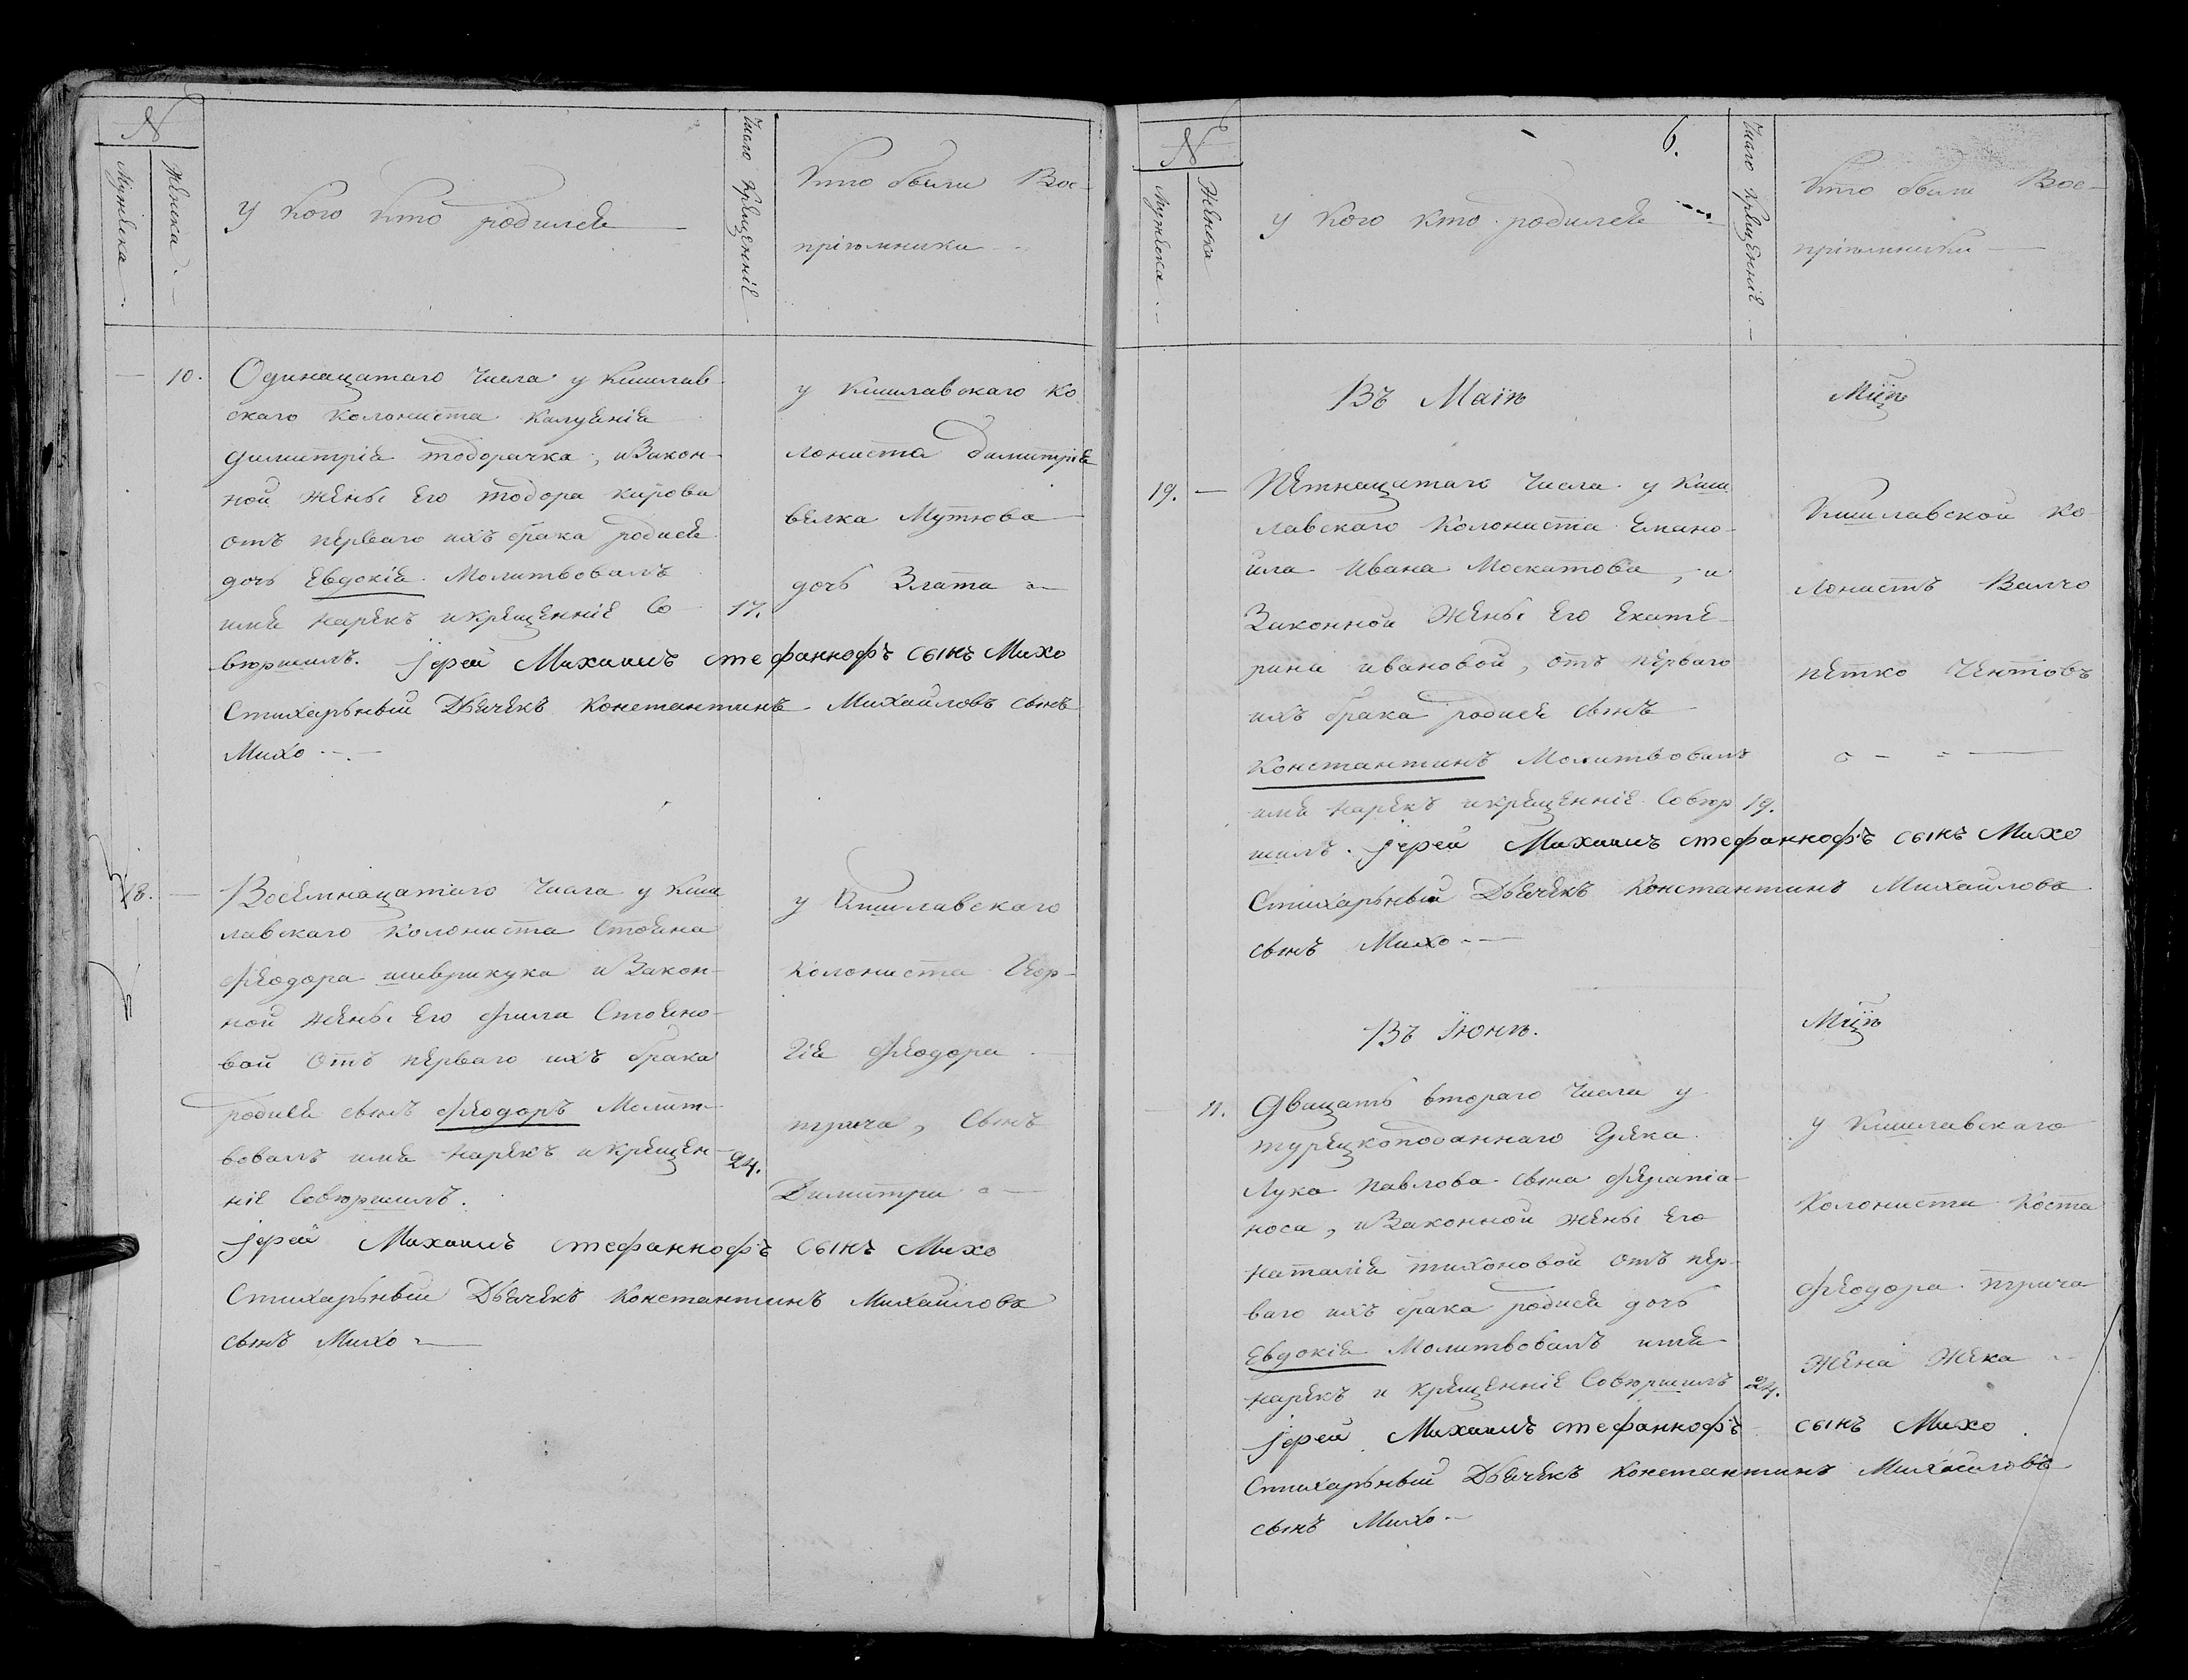 N
Мужеска.
Женска.
У кого кто родился
Число крещенніе
Кто были Вос-
пріемники
10.
Одинацатаго числа у Кишлав-
скаго колониста
Димитріа тодорачка, иЗакон-
ной жены Его тодора кирова
отъ перваго ихъ брака родися
дочь Евдокіа. Молитвовалъ
имя нарекъ икрещенніе Со
17.
вюршилъ. Іерей Михаилъ стефанкофъ сынъ Михо
Стихарьный Дьячекъ Константинъ Михайловъ сынъ
Михо
у Кишлавскаго ко
лониста Димитріа
велка Мутюва
дочь Злата
18.
Восемнацатаго числа у Киш
лавскаго колониста Стояна
Феодора иЗакон-
ной жены Его Фила Стояно-
вой Отъ перваго ихъ брака
родися сынъ Феодоръ Молит-
вовалъ имя нарекъ икрещен-
24.
ніе Совюршилъ.
Іерей Михаилъ стефанкофъ сынъ Михо
Стихарьный Дьячекъ Константинъ Михайловъ
сынъ Михо
у Кишлавскаго
колониста Геор-
гіа Феодора
сынъ
Димитри
6.
N
Мужеска.
Женска
У кого кто родился
Число крещенніе.
Кто были Вос-
пріемники
Въ Маіѣ
Мцѣ
19.
Петнацатаго числа у Киш
лавскаго колониста Емано-
ила Ивана Москатова, и
Законной жены Его Екате-
рина ивановой, отъ перваго
ихъ брака родися сынъ
Константинъ Молитвовалъ
имя нарекъ икрещенніе Совюр
19.
шилъ. Іерей Михаилъ стефанкофъ сынъ Михо
Стихарьный Дьячекъ Константинъ Михайловъ
сынъ Михо
Кишлавской ко-
лонистъ Валчо
петко Чентовъ
Въ Іюнѣ.
Мцѣ
11.
Двацать втораго числа у
турецкоподаннаго Грека
Лука Павлова сына
носа, иЗаконной жены Его
Наталіа тихоновой отъ пер-
ваго ихъ брака родися дочь
Евдокіа Молитвовалъ имя
нарекъ и крещенніе Совюршилъ
24.
Іерей Михаилъ стефанкофъ сынъ Михо
Стихарьный Дьячекъ Константинъ Михайловъ
сынъ Михо
у Кишлавскаго
колониста Коста
Феодора
жена Жека